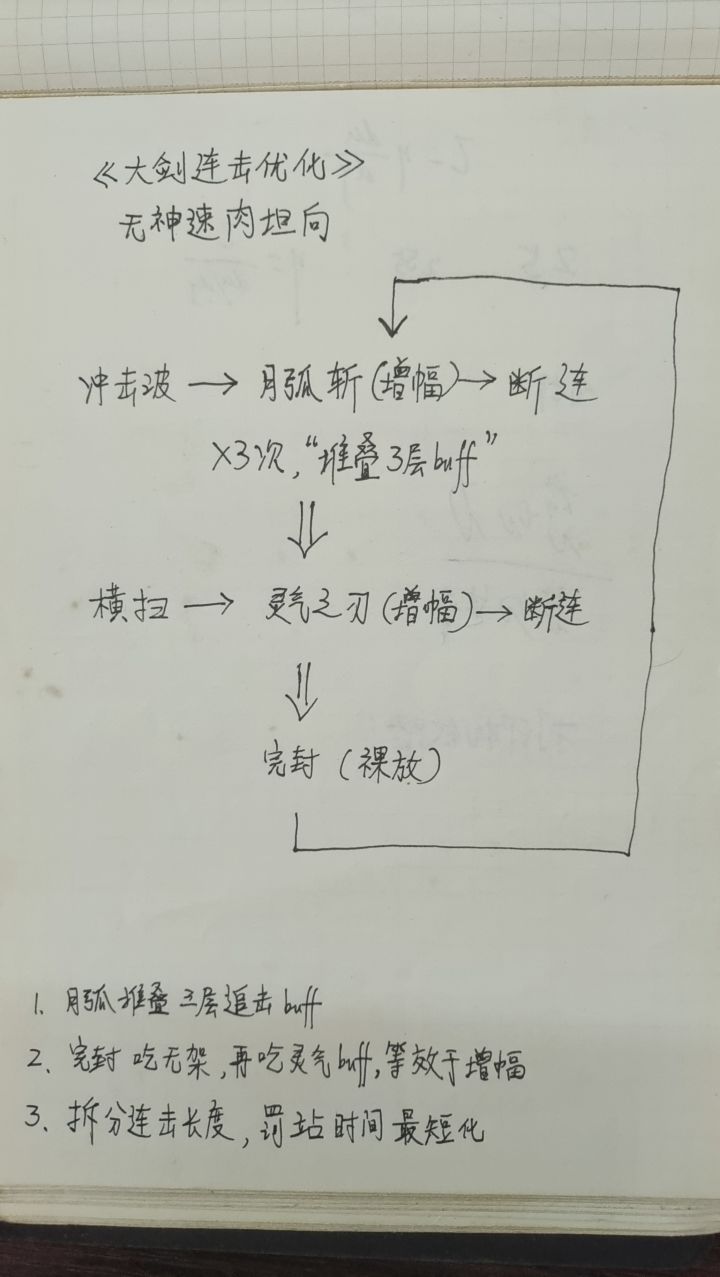 《大剑连击优化》
无神速肉坦向
冲击波 → 月弧斩(增幅) → 断连
×3次,“堆叠3层buff”
横扫 → 灵气之刃(增幅) → 断连
完封(裸放)
1. 月弧堆叠三层追击buff
2、完封吃无架,再吃灵气buff,等效于增幅
3、拆分连击长度,罚站时间最短化